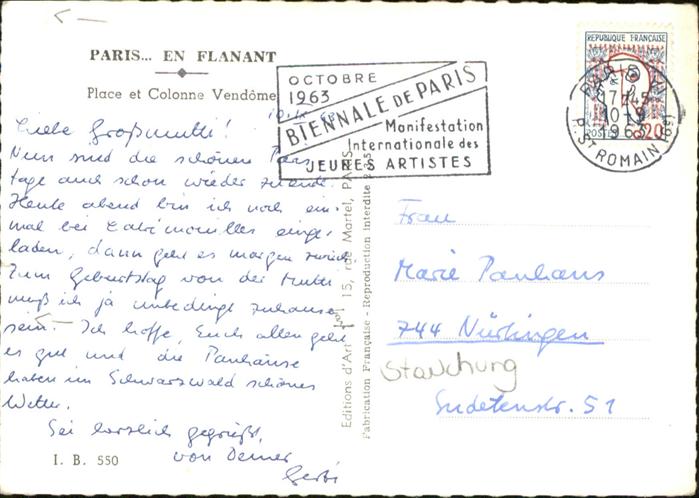 PARIS... EN FLANANT
Place et Colonne Vendôme
OCTOBRE
1963
BIENNALE DE PARIS
Manifestation
Internationale des
JEUNES ARTISTES
REPUBLIQUE FRANÇAISE
POSTES 0,20
PARIS
17H45
10-9
1963
R. St ROMAIN (6e)
Liebe Großmutti!
Nun sind die schönen Paris
tage auch schon wieder zuende.
Heute abend bin ich noch ein-
mal bei einge-
laden, dann geht es morgen zurück.
Zum Geburtstag von der Mutti
muß ich ja unbedingt zuhause
sein. Ich hoffe, Euch allen geht
es gut und die Panhäuse
haben im Schwarzwald schönes
Wetter.
Sei herzlich gegrüßt,
von Deiner
Gerbi
I. B. 550
Editions d'Art 15, rue Martel, PARIS
Fabrication Française - Reproduction Interdite
Frau
Marie Panhans
744 Nürtingen
Stauchung
Sudetenstr. 51